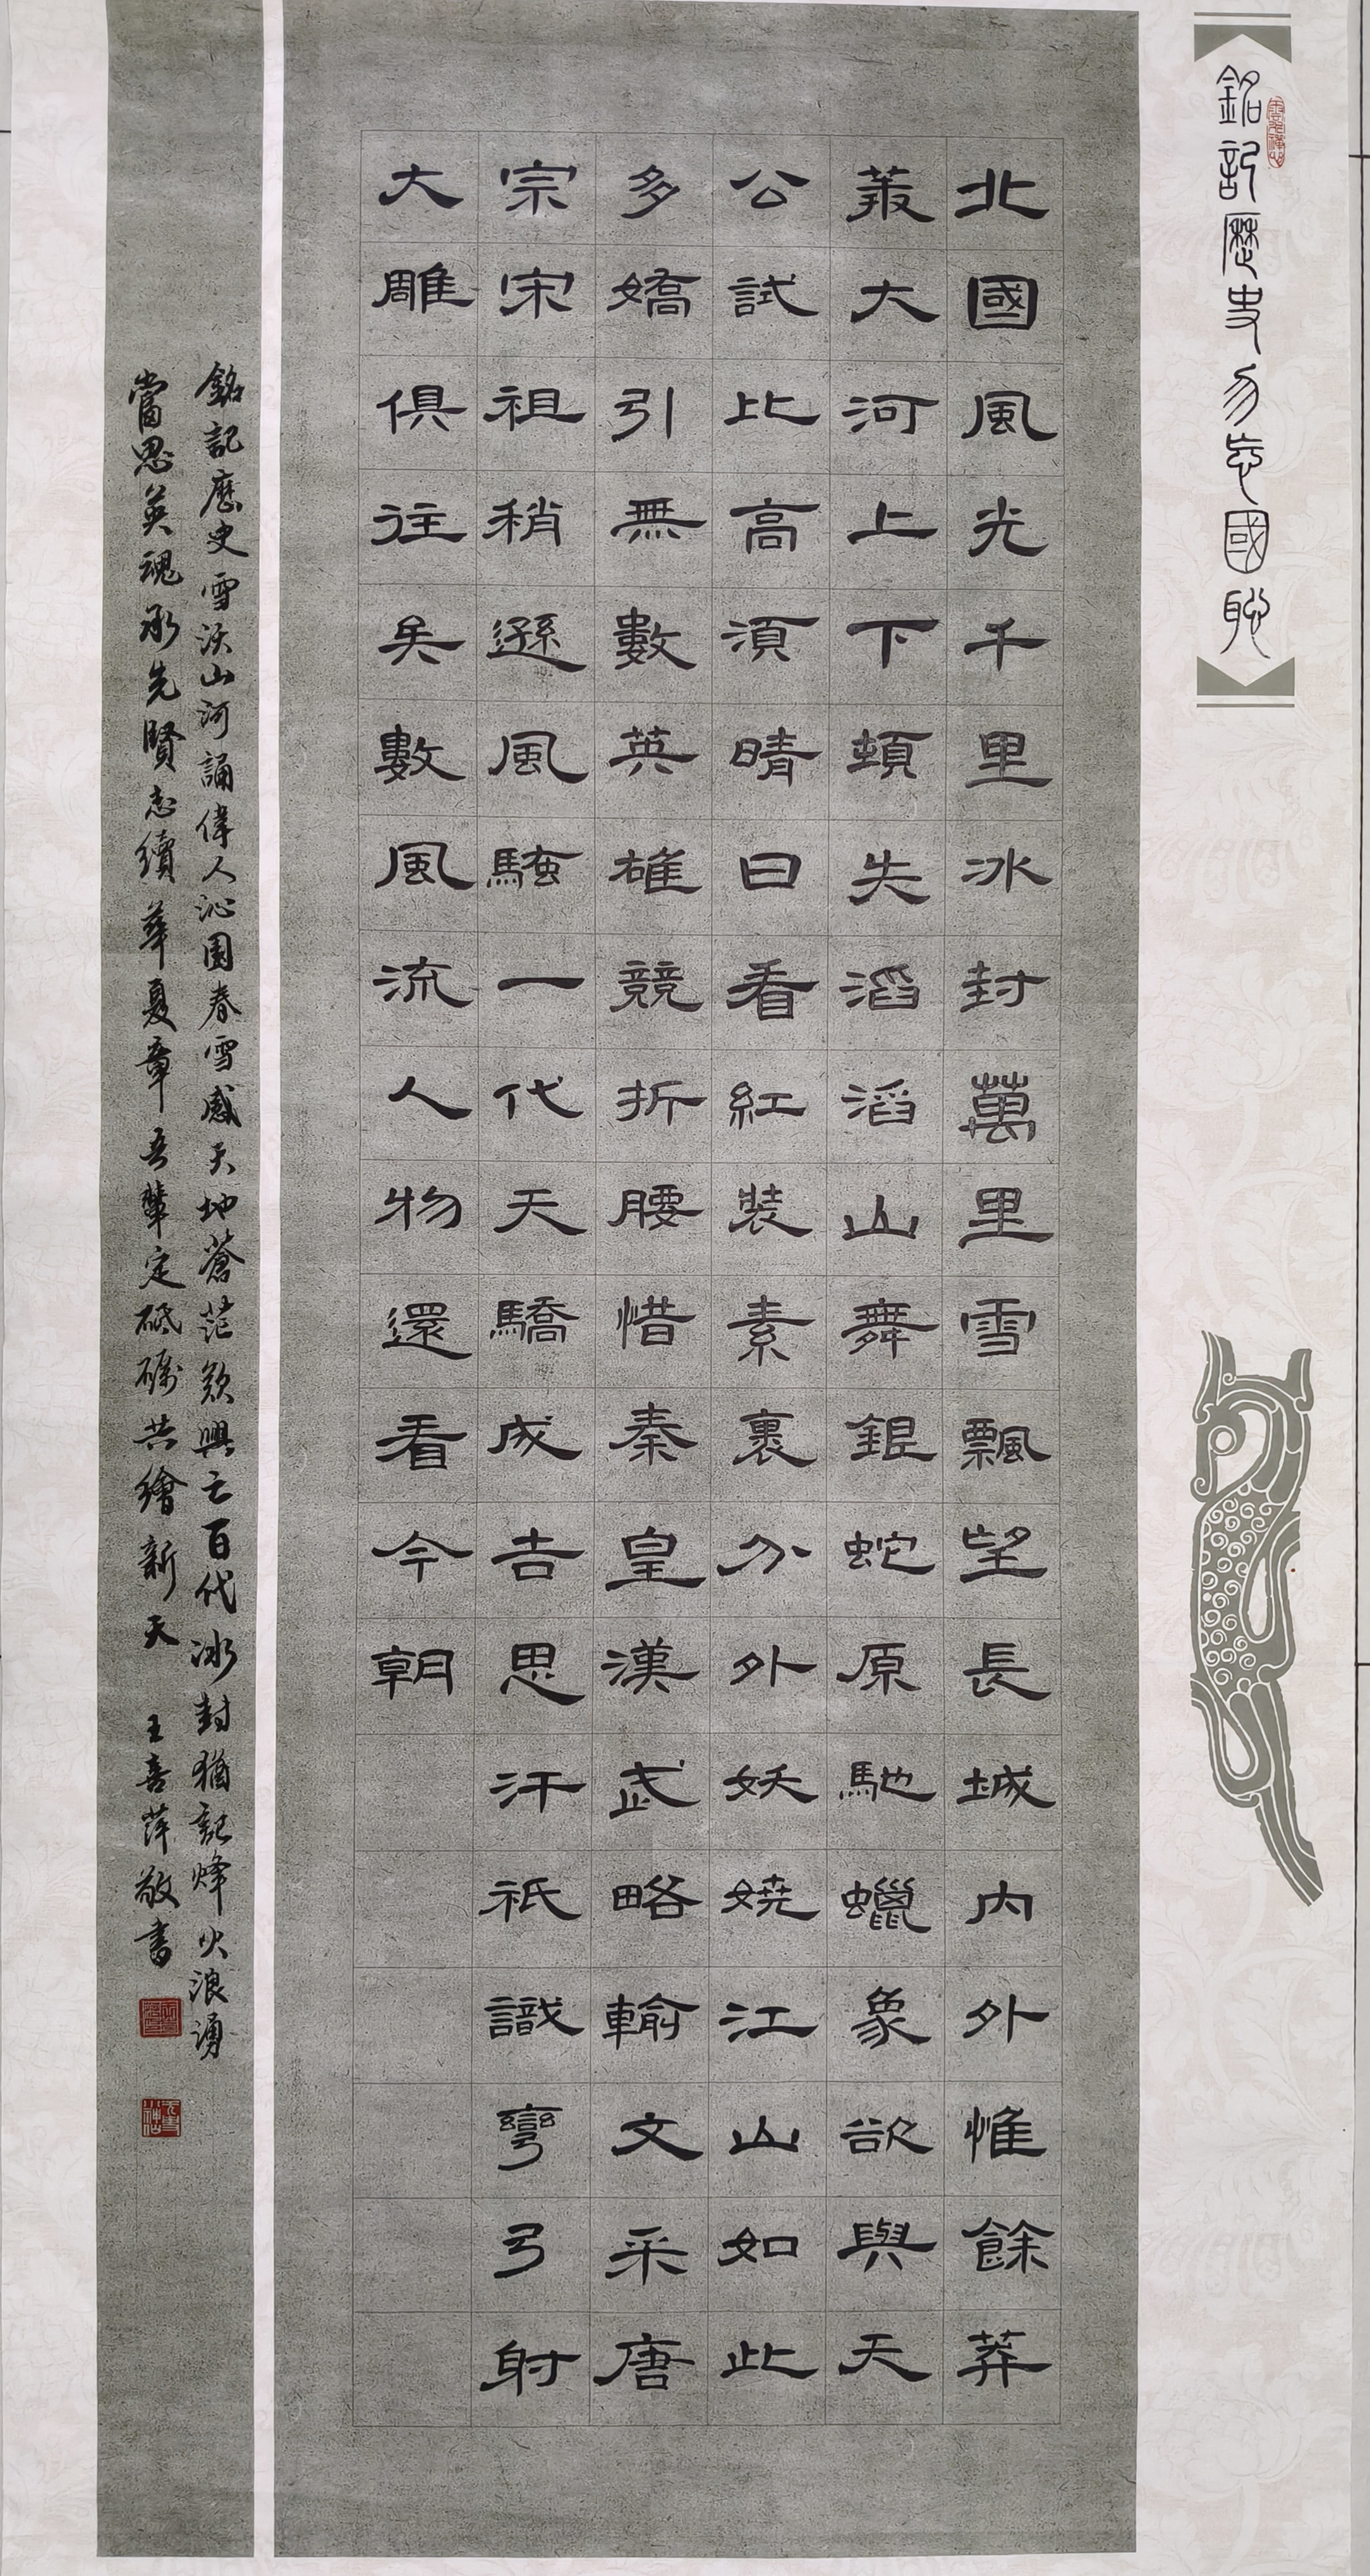 銘記歷史勿忘國恥
北國風光千里冰封萬里雪飄望長城內外惟餘莽
叢大河上下頓失滔滔山舞銀蛇原馳蠟象欲與天
公試比高須晴日看紅裝素裹分外妖嬈江山如此
多嬌引無數英雄競折腰惜秦皇漢武略輸文采唐
宗宋祖稍遜風騷一代天驕成吉思汗祇識彎弓射
大雕俱往矣數風流人物還看今朝
銘記歷史雪沃山河誦偉人沁園春雪感天地蒼茫歎興亡百代冰封猶記烽火浪湧
當思英魂承先賢志續華夏章吾輩定砥礪共繪新天 王喜萍敬書